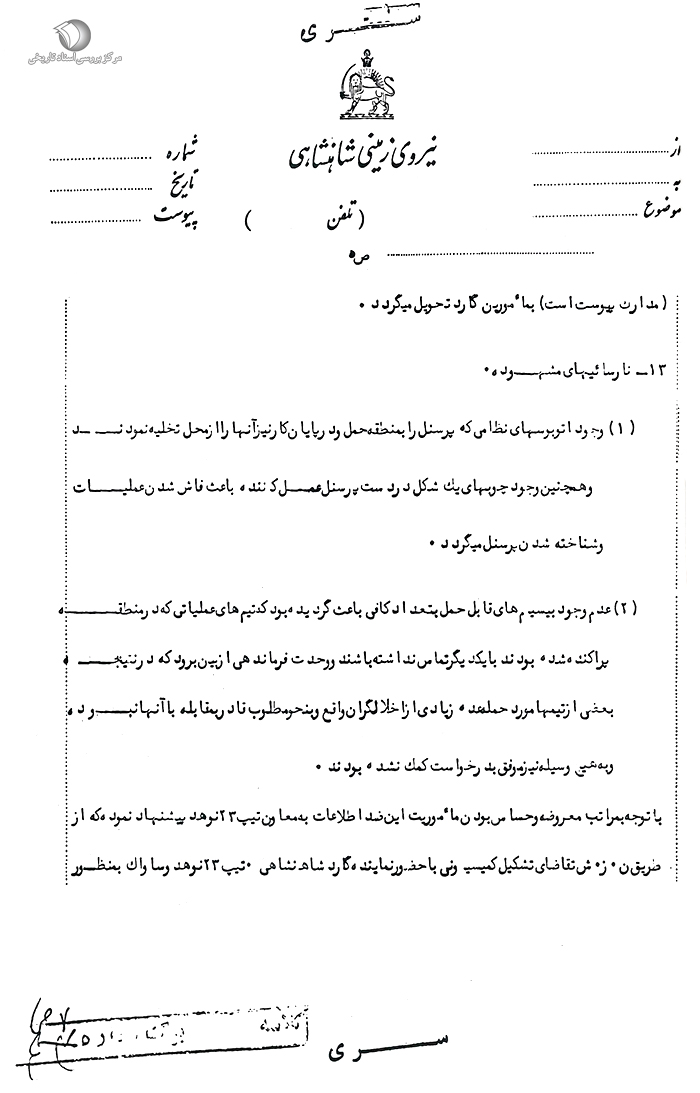 سری
مرکز بررسی اسناد تاریخی
نیروی زمینی شاهنشاهی
از
به
موضوع
شماره
تاریخ
پیوست
(تلفن )
ص ۵
(مدارك پیوست است) بمأمورین گارد تحویل میگردد ۰
۱۳ـ نارسائیهای مشهوده ۰
(۱) وجود اتوبوسهای نظامی که پرسنل را بمنطقه حمل و در پایان کار نیز آنها را از محل تخلیه نمودند
وهمچنین وجود چوبهای یك شکل در دست پرسنل عمل کننده باعث فاش شدن عملیات
وشناخته شدن پرسنل میگردد ۰
(۲) عدم وجود بیسیم های قابل حمل بتعداد کافی باعث گردیده بود که تیم های عملیاتی که در منطقه
پراکنده شده بودند با یکدیگر تماس نداشته باشند و وحدت فرماندهی از بین برود که در نتیجه
بعضی از تیمها مورد حمله عده زیادی از اخلالگران واقع وبنحو مطلوب قادر بمقابله با آنها نبوده
وبه همین وسیله نیز موفق بدرخواست کمك نشده بودند ۰
با توجه بمراتب معروضه وحساس بودن مأموریت این ضد اطلاعات به معاون تیپ ۲۳ نوهد پیشنهاد نموده که از
طریق ن ۰ ز ۰ ش تقاضای تشکیل کمیسیونی با حضور نماینده گارد شاهنشاهی ۰ تیپ ۲۳ نوهد وساواك بمنظور
سری